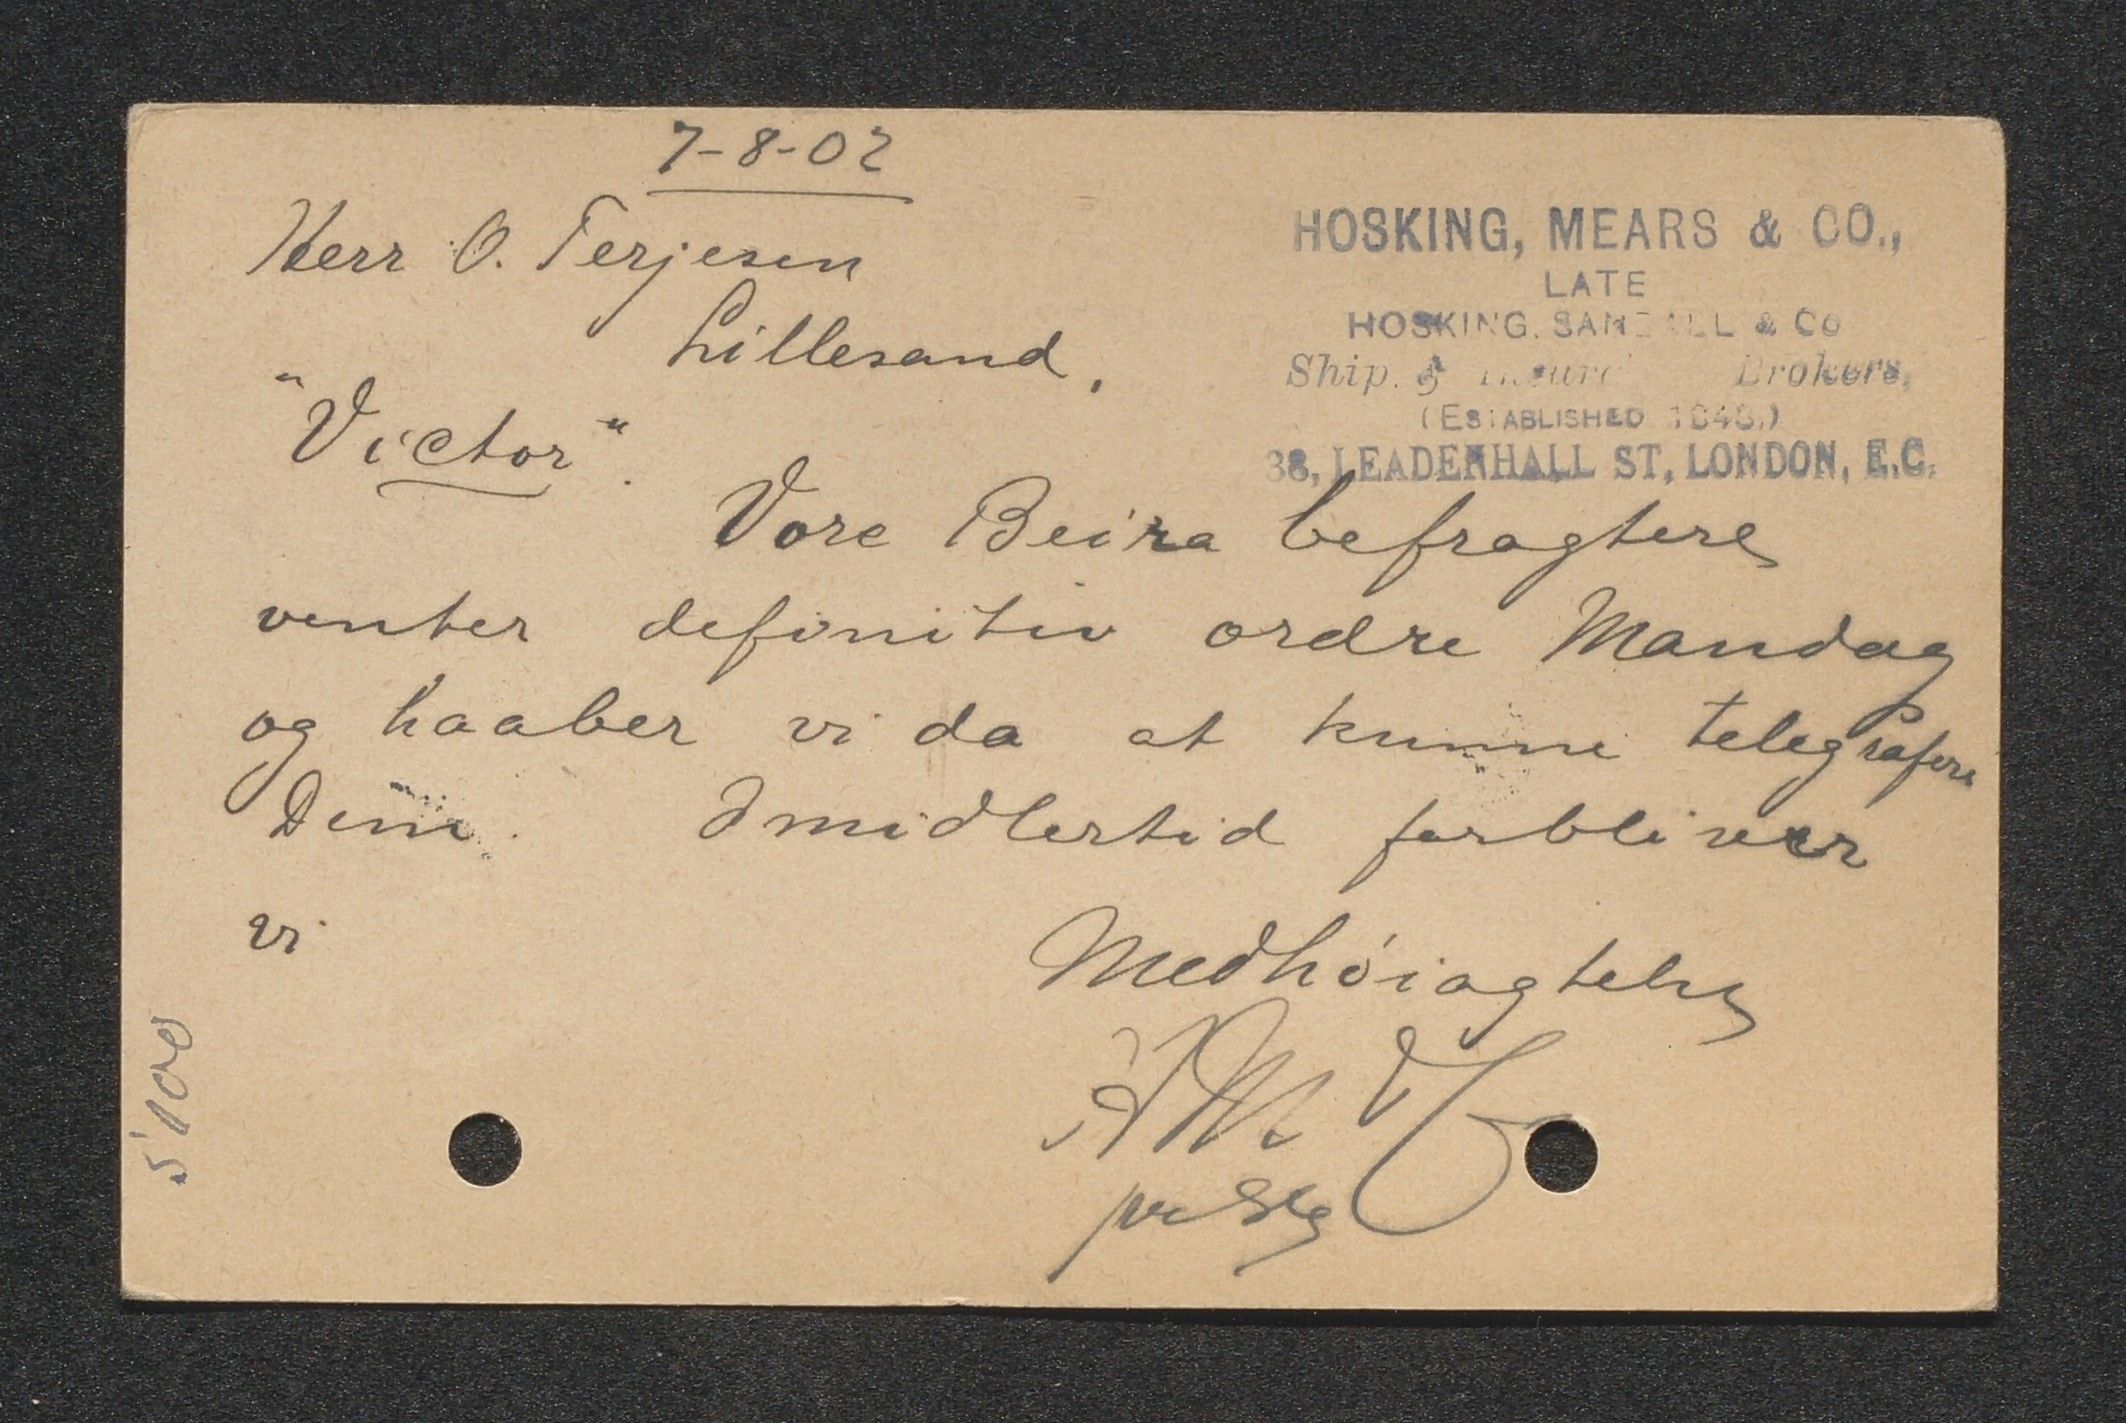 7-8-02
HOSKING, MEARS & CO.,
LATE
HOSKING, & Co
Ship & Brokers,
(ESTABLISHED
38, LEADENHALL ST, LONDON, E.C.
Herr O. Terjesen
Lillesand.
"Victor".
Vore Beira befragtere
venter definitiv ordre Mandag
og haaber vi da at kunne telegrafere
Dem. Imidlertid forbliver
vi
Medhöiagtelse
5'100